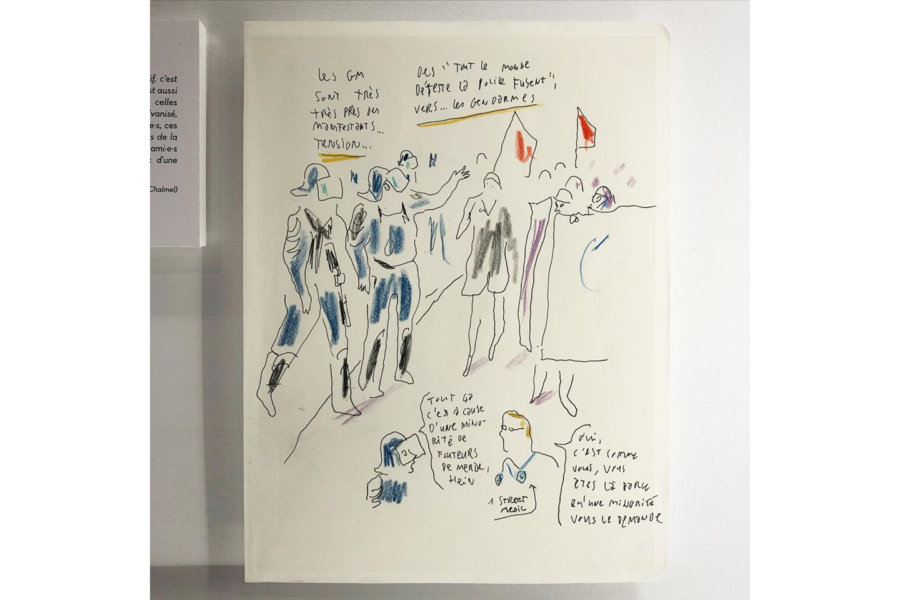 if, c'est
st aussi
celles
vanisé,
e·s, ces
s de la
ami·e·s
: d'une
Chalmel)
Les GM
SONT TRÈS
TRÈS PRÈS DES
MANIFESTANTS...
TENSION...
DES "TOUT LE MONDE
DÉTESTE LA POLICE FUSENT",
VERS... LES GENDARMES
TOUT ÇA
C'EST À CAUSE
D'UNE MINO-
RITÉ DE
FOUTEURS
DE MERDE,
HEIN
1 STREET
MEDIC
OUI,
C'EST COMME
VOUS, VOUS
ÊTES LÀ PARCE
QU'UNE MINORITÉ
VOUS LE DEMANDE